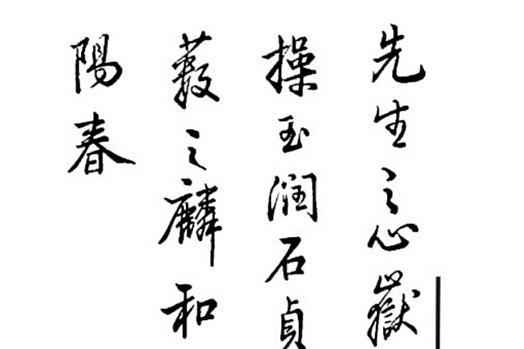 先生之心嶽
操玉润石貞
薮之麟和
陽春